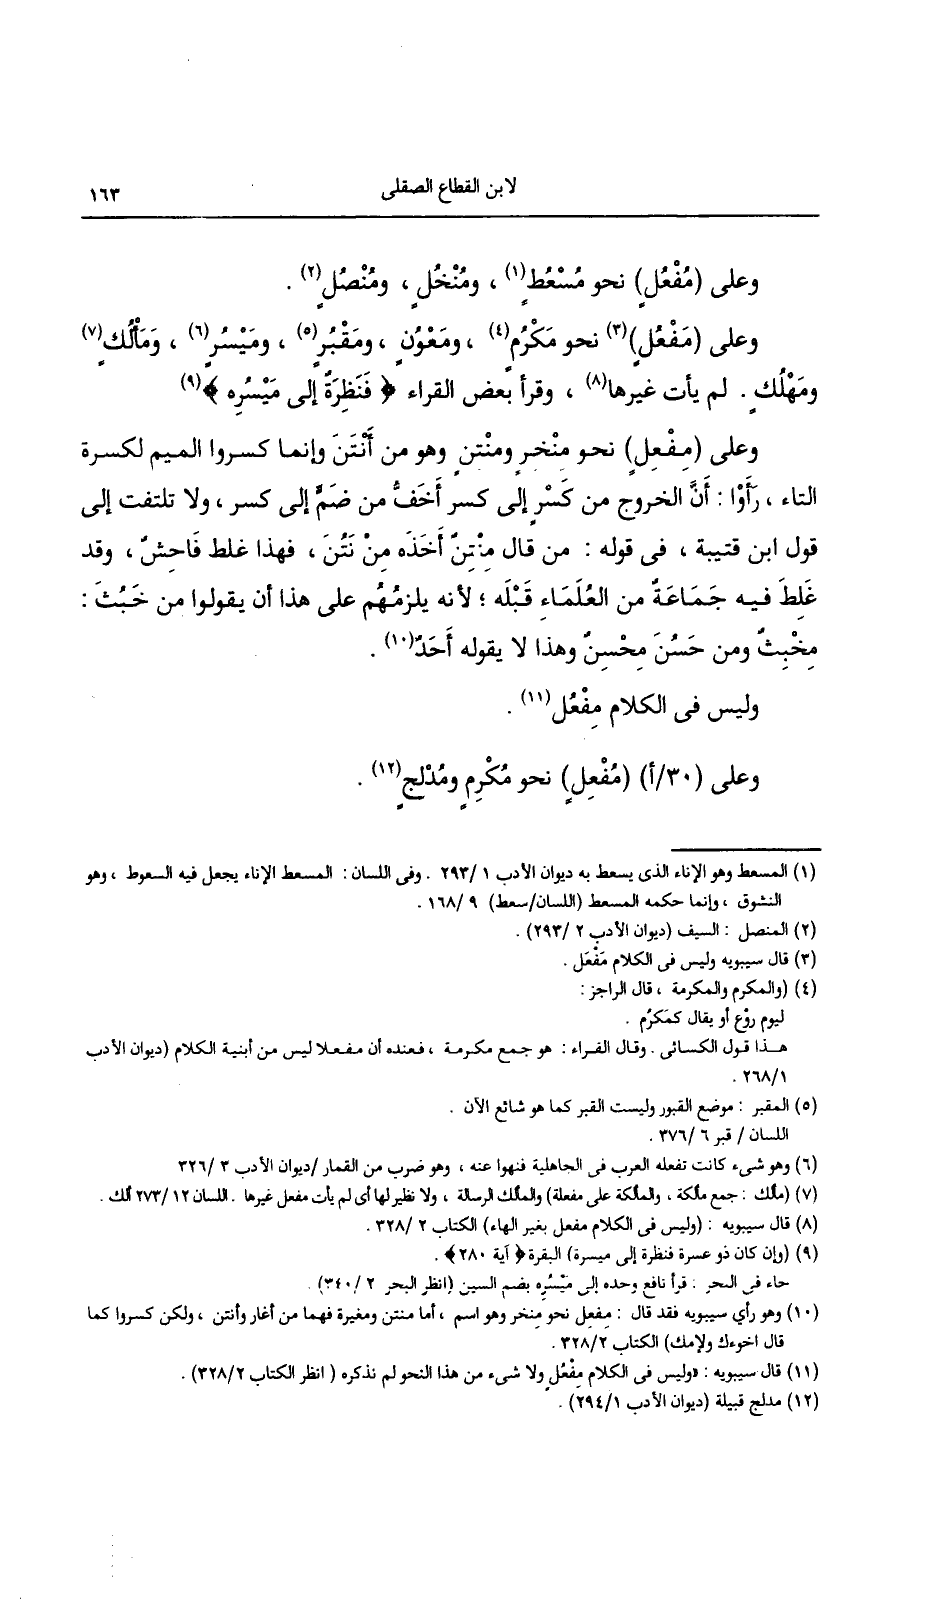 لابن القطاع الصقلى
١٦٣
وعلى (مُفْعُلٍ) نحو مُسْعُطٍ(١) ، ومُنْخُلٍ ، ومُنْصُلٍ(٢) .
وعلى (مَفْعُلٍ)(٣) نحو مَكْرُمٍ(٤) ، ومَعْوُنٍ ، ومَقْبُرٍ(٥) ، ومَيْسُرٍ(٦) ، وَمَأْلُكٍ(٧)
ومَهْلُكٍ . لم يأت غيرها(٨) ، وقرأ بعض القراء ﴿ فَنَظِرَةٌ إلى مَيْسُرِه ﴾(٩)
وعلى (مِفْعِلٍ) نحو مِنْخِرٍ ومنْتنٍ وهو من أَنْتَنَ وإنما كسروا الميم لكسرة
التاء ، رَأَوْا : أنَّ الخروج من كَسْرٍ إلى كسر أخَفُّ من ضَمٍّ إلى كسر ، ولا تلتفت إلى
قول ابن قتيبة ، فى قوله : من قال مِنْتِنٌ أخَذَه مِنْ نَتُنَ ، فهذا غلط فَاحِشٌ ، وقد
غَلِطَ فيه جَمَاعَةٌ من العُلَمَاءِ قَبْلَه ؛ لأنه يلزمُهُم على هذا أن يقولوا من خَبُثَ :
مِخْبِثٌ ومن حَسُنَ مِحْسِنٌ وهذا لا يقوله أحَدٌ(١٠) .
وليس فى الكلام مِفْعُل(١١) .
وعلى (٣٠/أ) (مُفْعِلٍ) نحو مُكْرِمٍ ومُدْلجٍ(١٢) .
(١) المسعط وهو الإناء الذى يسعط به ديوان الأدب ١ /٢٩٣ . وفى اللسان : المسعط الإناء يجعل فيه السعوط ، وهو
النشوق ، وإنما حكمه المسعط (اللسان/سعط) ٩ /١٦٨ .
(٢) المنصل : السيف (ديوان الأدب ٢ /٢٩٣) .
(٣) قال سيبويه وليس فى الكلام مَفْعَل .
(٤) (والمكرم والمكرمة ، قال الراجز :
ليوم روْع أو يقال كمَكرُم .
هـذا قول الكسائى . وقال الفراء : هو جمع مكرمة ، فعنده أن مفعلا ليس من أبنية الكلام (ديوان الأدب
٢٦٨/١ .
(٥) المقبر : موضع القبور وليست القبر كما هو شائع الآن .
اللسان / قبر ٦ /٣٧٦ .
(٦) وهو شىء كانت تفعله العرب فى الجاهلية فنهوا عنه ، وهو ضرب من القمار /ديوان الأدب ٣ /٣٢٦
(٧) (مألك : جمع مألكة ، والمألكة على مفعلة) والمألك الرسالة ، ولا نظير لها أى لم يأت مفعل غيرها . اللسان ١٢ /٢٧٣ ألك .
(٨) قال سيبويه : (وليس فى الكلام مفعل بغير الهاء) الكتاب ٢ /٣٢٨ .
(٩) (وإن كان ذو عسرة فنظرة إلى ميسرة) البقرة﴿ آية ٢٨٠ ﴾ .
جاء فى البحر : قرأ نافع وحده إلى مَيْسُرِه بضم السين (انظر البحر ٢ /٣٤٠) .
(١٠) وهو رأي سيبويه فقد قال : مِفعِل نحو مِنخر وهو اسم ، أما منتن ومغيرة فهما من أغار وأنتن ، ولكن كسروا كما
قال اخوءك ولإمك) الكتاب ٣٢٨/٢ .
(١١) قال سيبويه : «وليس فى الكلام مِفْعُلٍ ولا شىء من هذا النحو لم نذكره ( انظر الكتاب ٣٢٨/٢) .
(١٢) مدلج قبيلة (ديوان الأدب ٢٩٤/١) .